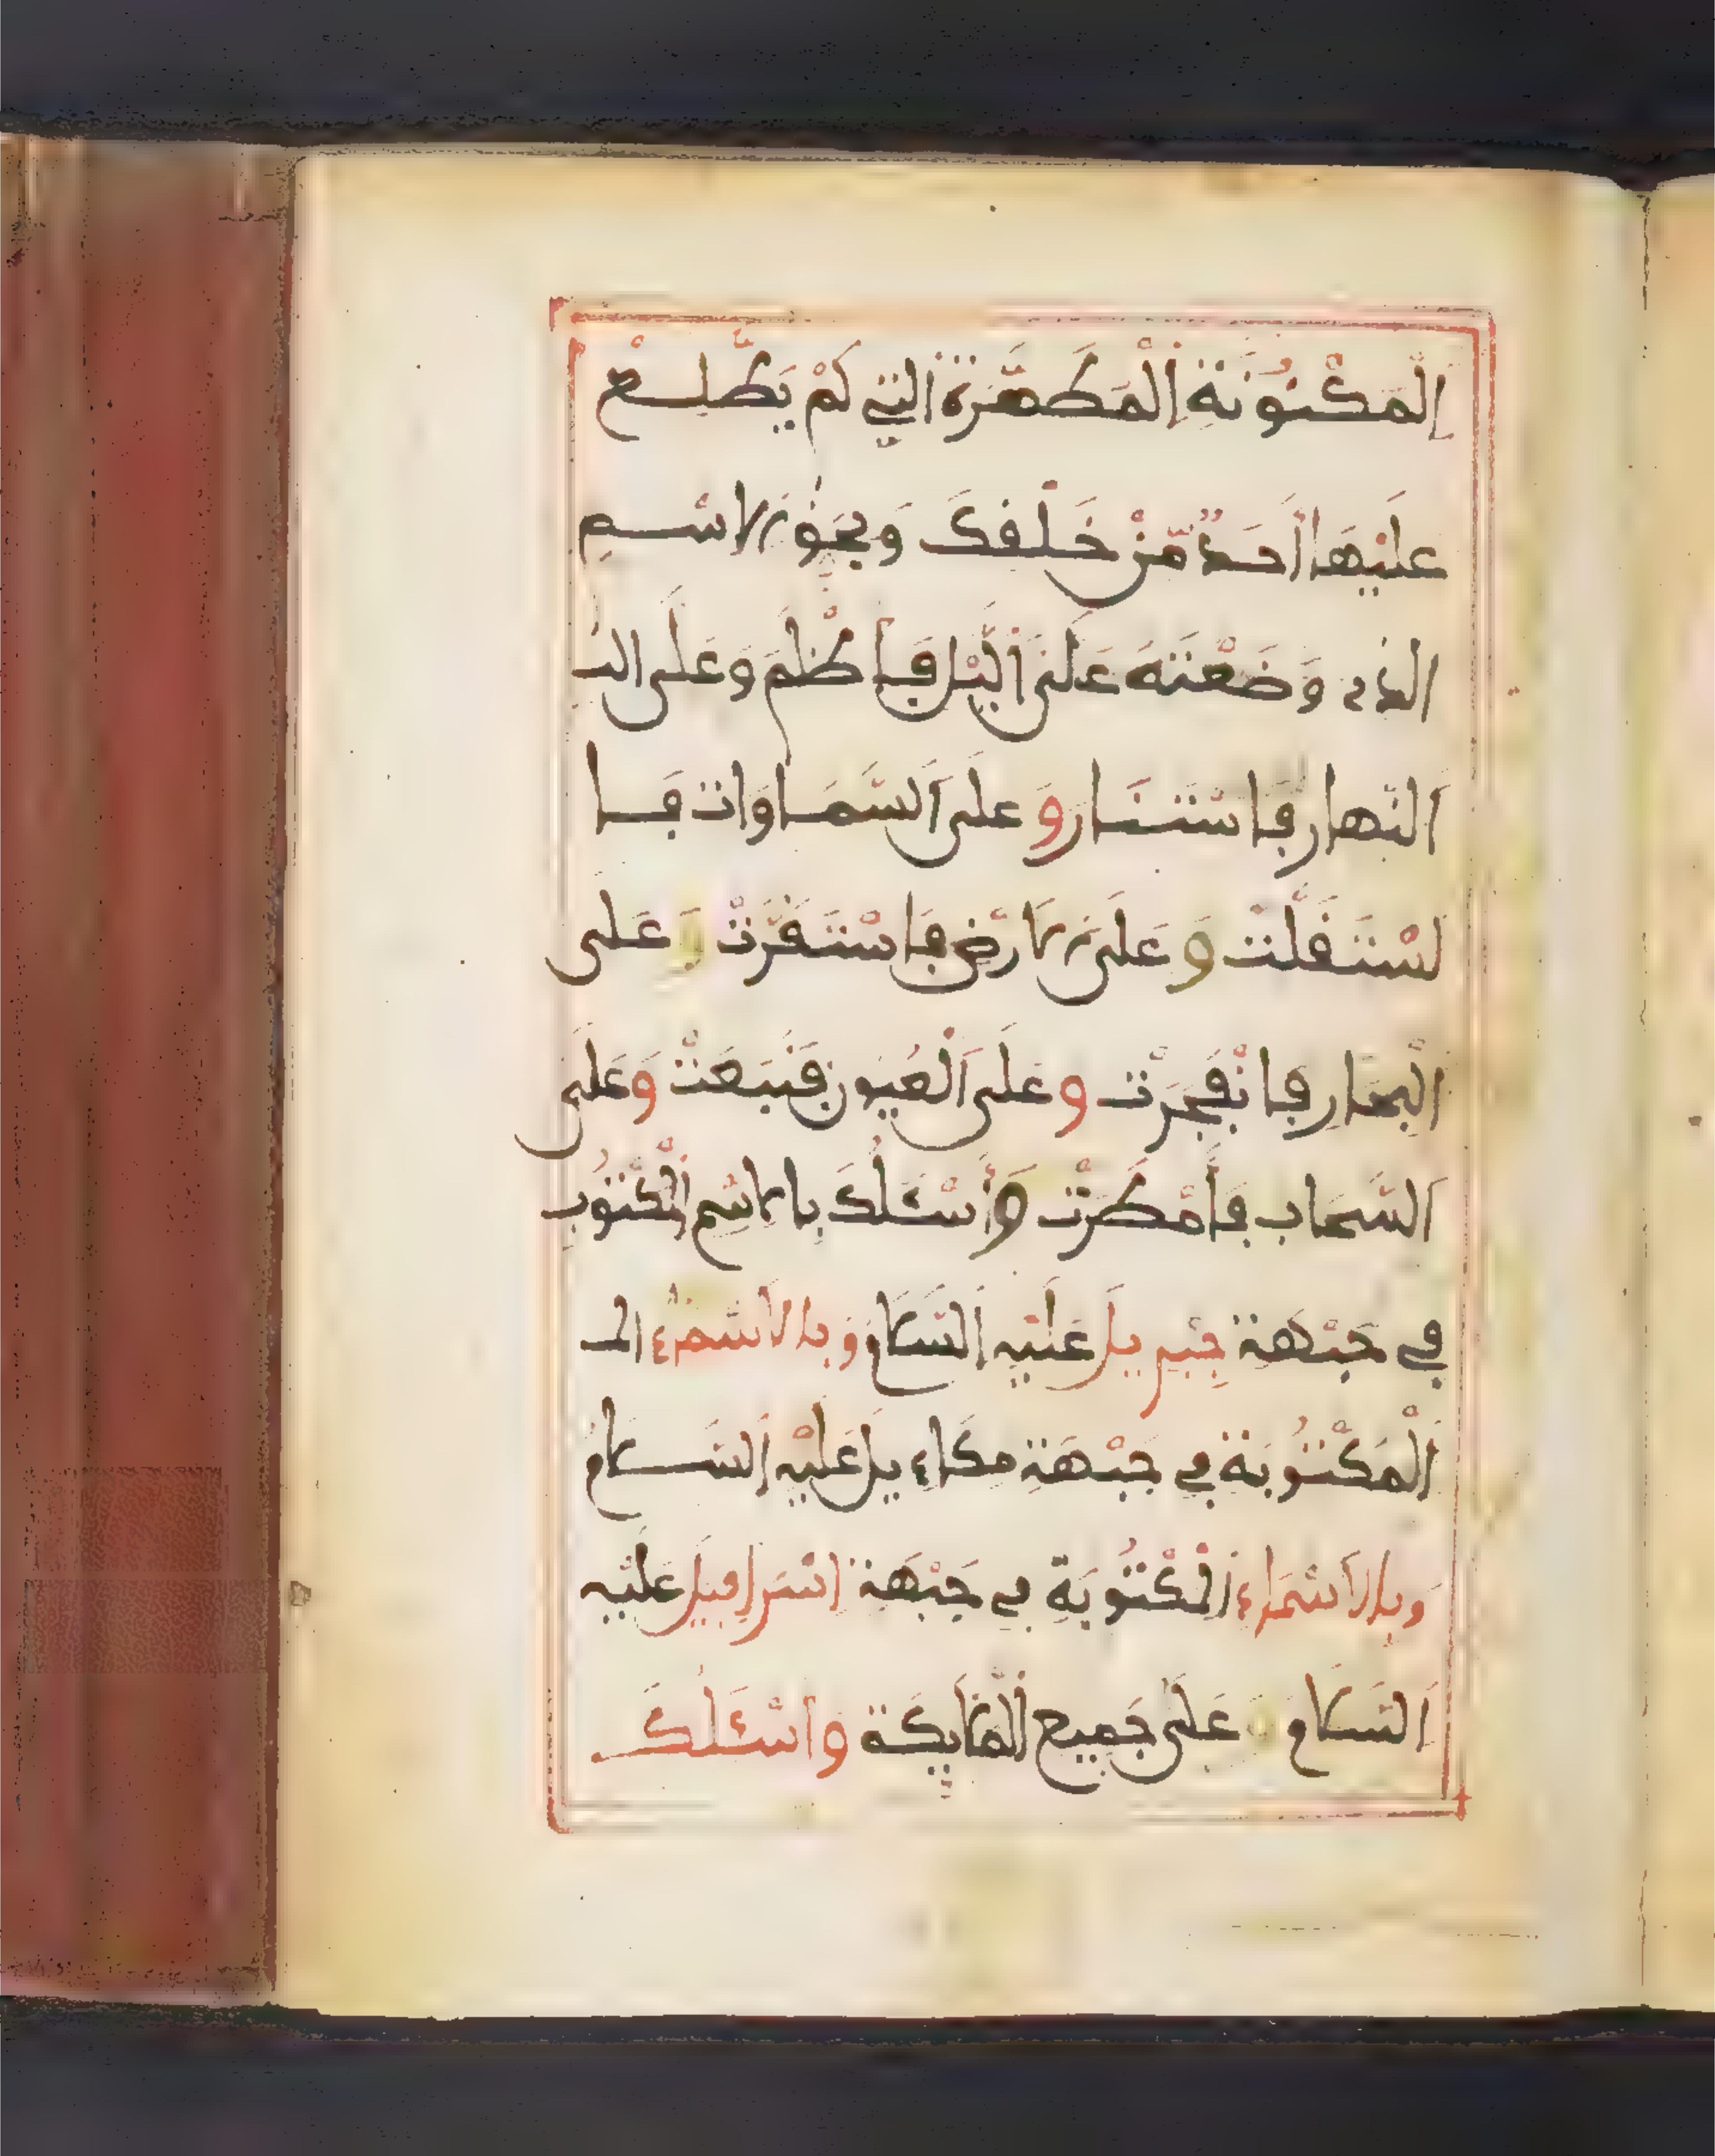 اَلْمَكْنُونَةِ اَلْمُطَهَّرَةِ اَلَّتِي لَمْ يَطَّلِعْ
عَلَيْهَا اَحَدٌ مِّنْ خَلْقِكَ وَبِحَقِّ الاِسْمِ
الذي وَضَعْتَهُ عَلَى اَلَّيْلِ فَاَظْلَمَ وَعَلَى الن
اَلنّهارِ فَاسْتَنَارَ وَعَلَى اَلسَّمَاوَاتِ فَا
سْتَقَلَّتْ وَعَلَى الاَرْضِ فَاسْتَقَرَّتْ وَعَلَى
اَلْبِحَارِ فَانْفَجَرَتْ وَعَلَى اَلْعُيُونِ فَنَبَعَتْ وَعَلَى
اَلسَّحَابِ فَأَمْطَرَتْ وَأَسْئَلُكَ بِالاَسْمِ اَلْمَكْتُوبِ
فِي جَبْهَةِ جِبْرِيلَ عَلَيْهِ اَلسَّلَامُ وَبِالاَسْمَاءِ الم
اَلْمَكْتُوبَةِ فِي جَبْهَةِ مِكَاءِيلَ عَلَيْهِ اَلسَّلَامُ
وَبِالاَسْمَاءِ اَلْمَكْتُوبَةِ فِي جَبْهَةِ اِسْرَافِيلَ عَلَيْهِ
اَلسَّلَامُ وَعَلَى جَمِيعِ اَلْمَلَايِكَةِ وَاَسْئَلُكَ